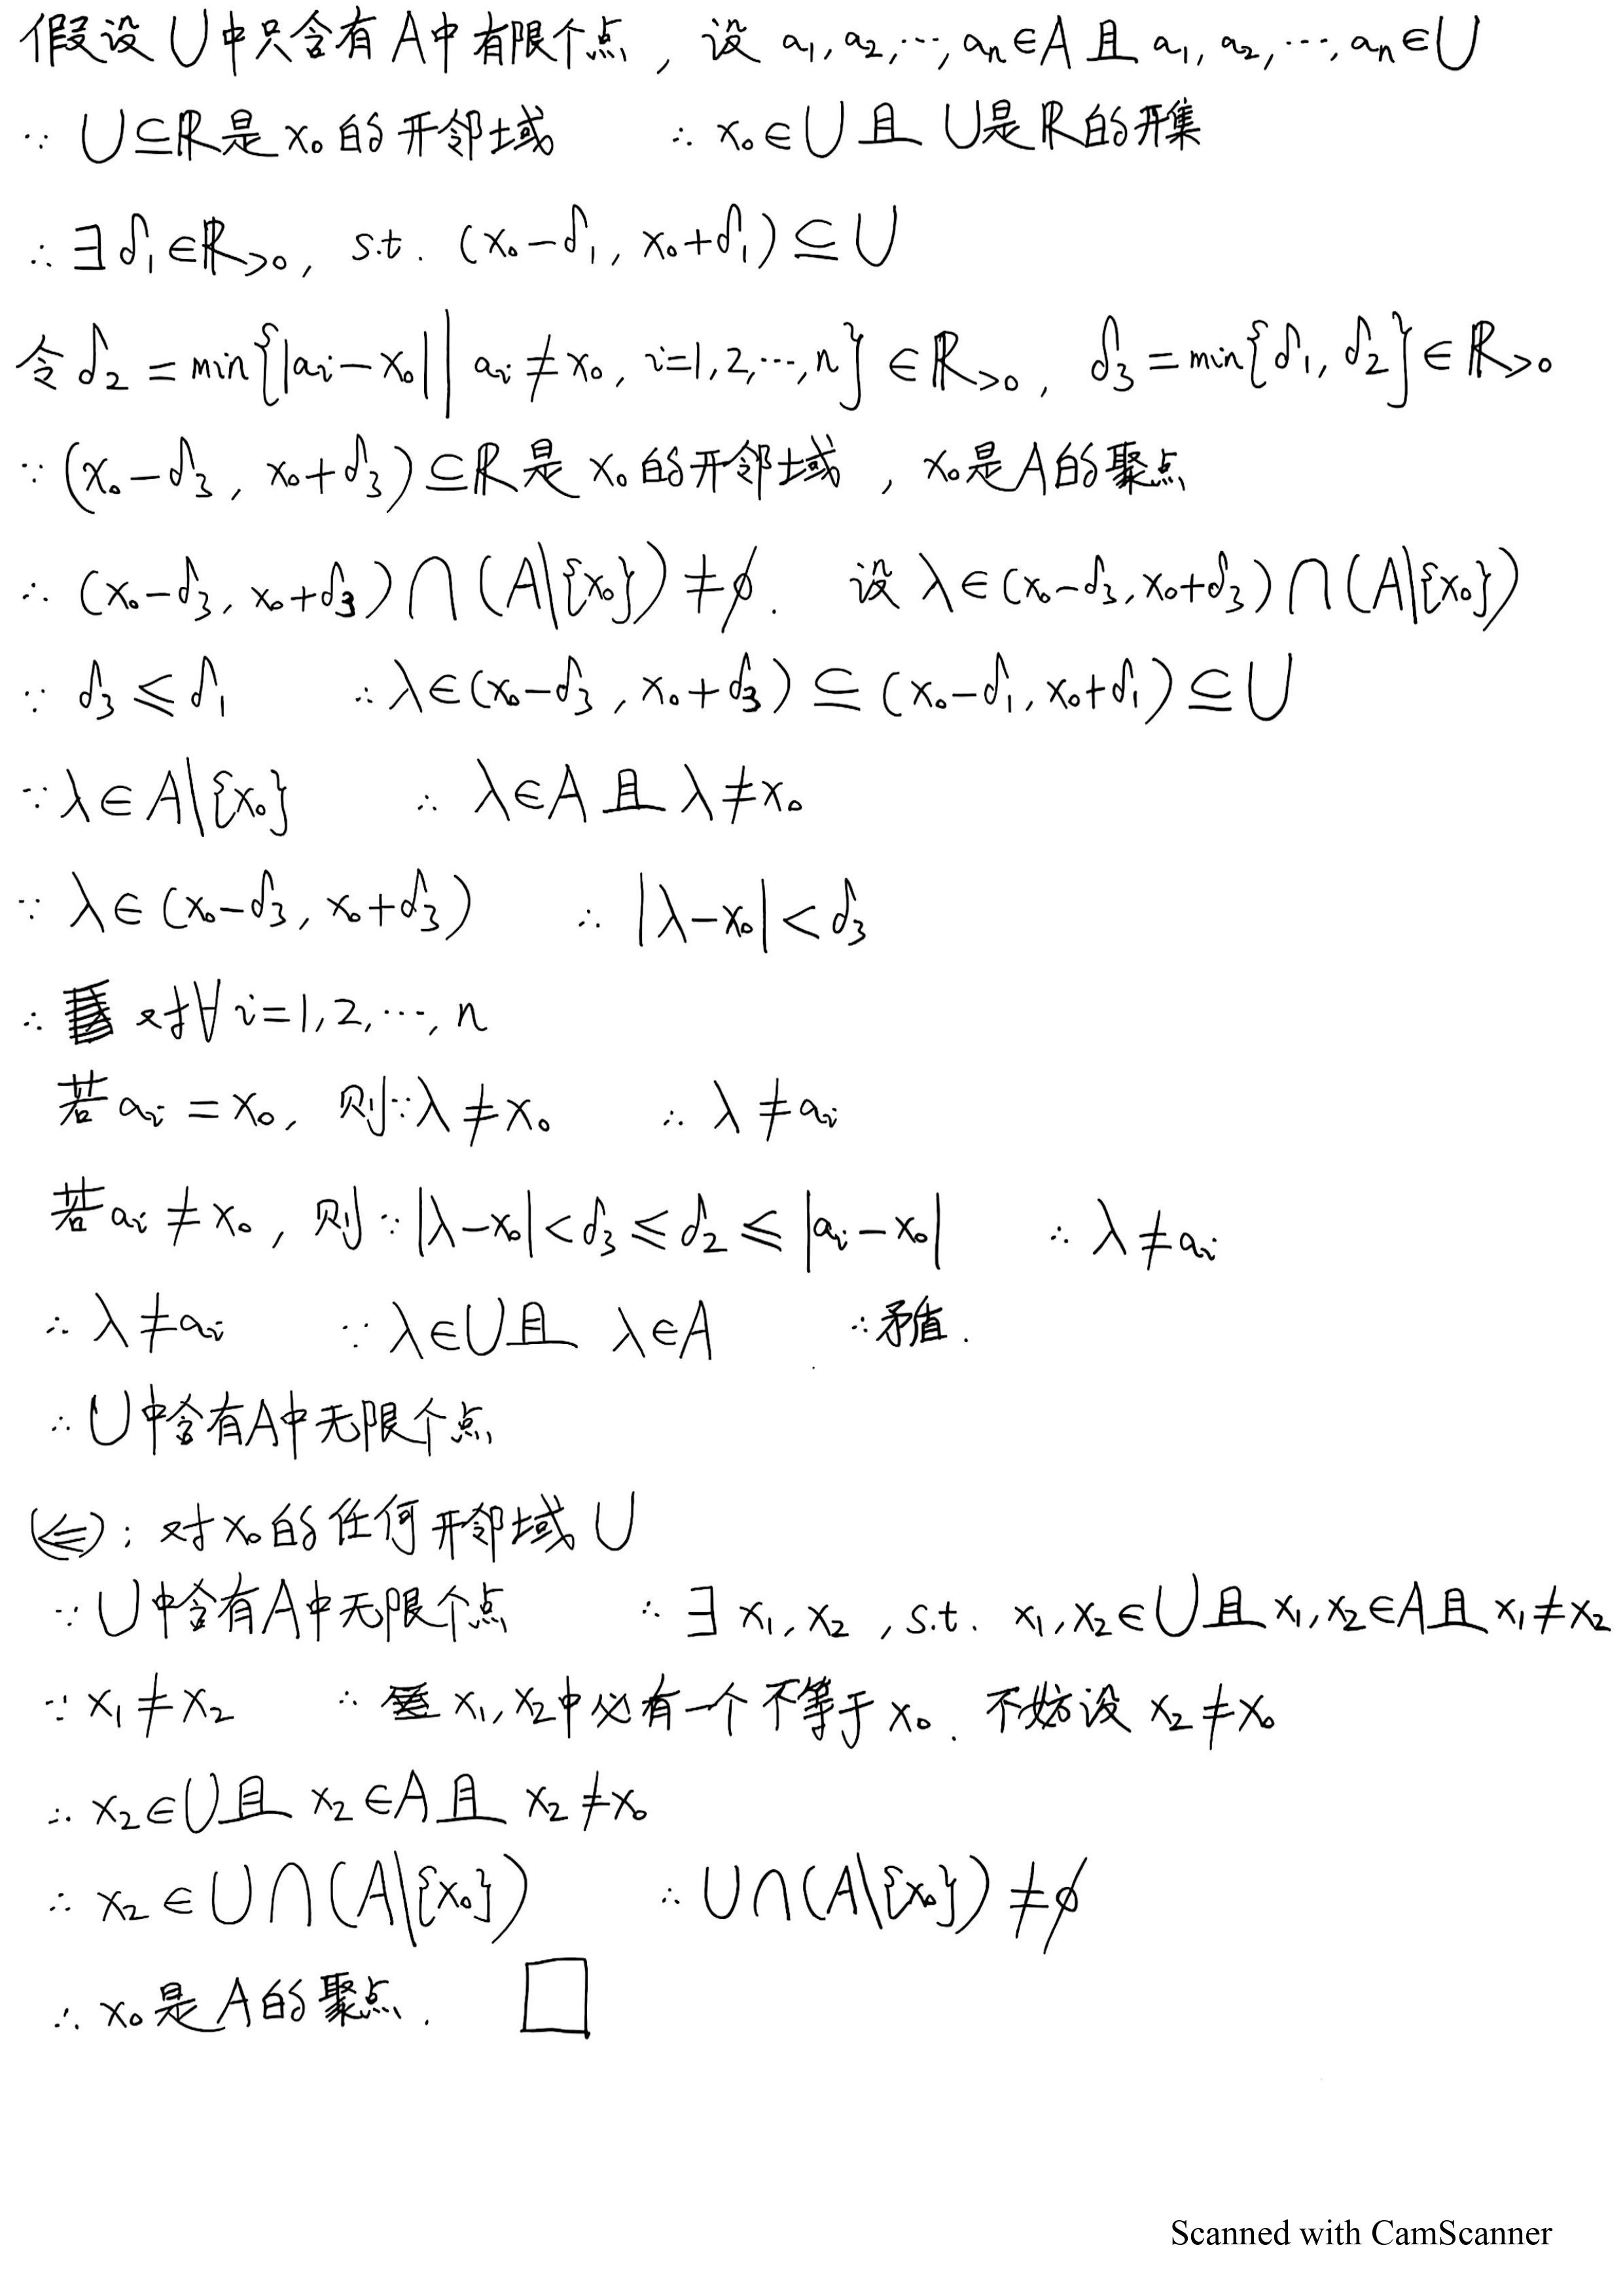 假设 U中只含有 A中有限个点 , 设 a₁, a₂, ⋯, aₙ∈A 且 a₁, a₂, ⋯, aₙ∈U
∵ U⊆ℝ是 x₀ 的开邻域 ∴ x₀∈U 且 U是ℝ的开集
∴ ∃ δ₁∈ℝ>₀, s.t. (x₀-δ₁, x₀+δ₁)⊆U
令 δ₂ = min{|aᵢ-x₀| | aᵢ≠x₀, i=1,2,⋯,n}∈ℝ>₀, δ₃=min{δ₁, δ₂}∈ℝ>₀
∵ (x₀-δ₃, x₀+δ₃)⊆ℝ是 x₀ 的开邻域 , x₀是A的聚点
∴ (x₀-δ₃, x₀+δ₃)∩(A\{x₀})≠∅. 设 λ∈(x₀-δ₃, x₀+δ₃)∩(A\{x₀})
∵ δ₃≤δ₁ ∴ λ∈(x₀-δ₃, x₀+δ₃)⊆(x₀-δ₁, x₀+δ₁)⊆U
∵ λ∈A\{x₀} ∴ λ∈A 且 λ≠x₀
∵ λ∈(x₀-δ₃, x₀+δ₃) ∴ |λ-x₀|<δ₃
∴ 对∀ i=1,2,⋯,n
若 aᵢ=x₀, 则∵λ≠x₀ ∴ λ≠aᵢ
若 aᵢ≠x₀, 则∵|λ-x₀|<δ₃≤δ₂≤|aᵢ-x₀| ∴ λ≠aᵢ
∴ λ≠aᵢ ∵ λ∈U且 λ∈A ∴矛盾.
∴ U中含有A中无限个点
(⇐): 对x₀的任何开邻域U
∵ U中含有A中无限个点 ∴ ∃ x₁, x₂, s.t. x₁, x₂∈U且x₁, x₂∈A且 x₁≠x₂
∵ x₁≠x₂ ∴ x₁, x₂中必有一个不等于x₀. 不妨设 x₂≠x₀
∴ x₂∈U且 x₂∈A且 x₂≠x₀
∴ x₂∈U∩(A\{x₀}) ∴ U∩(A\{x₀})≠∅
∴ x₀是A的聚点. □
Scanned with CamScanner